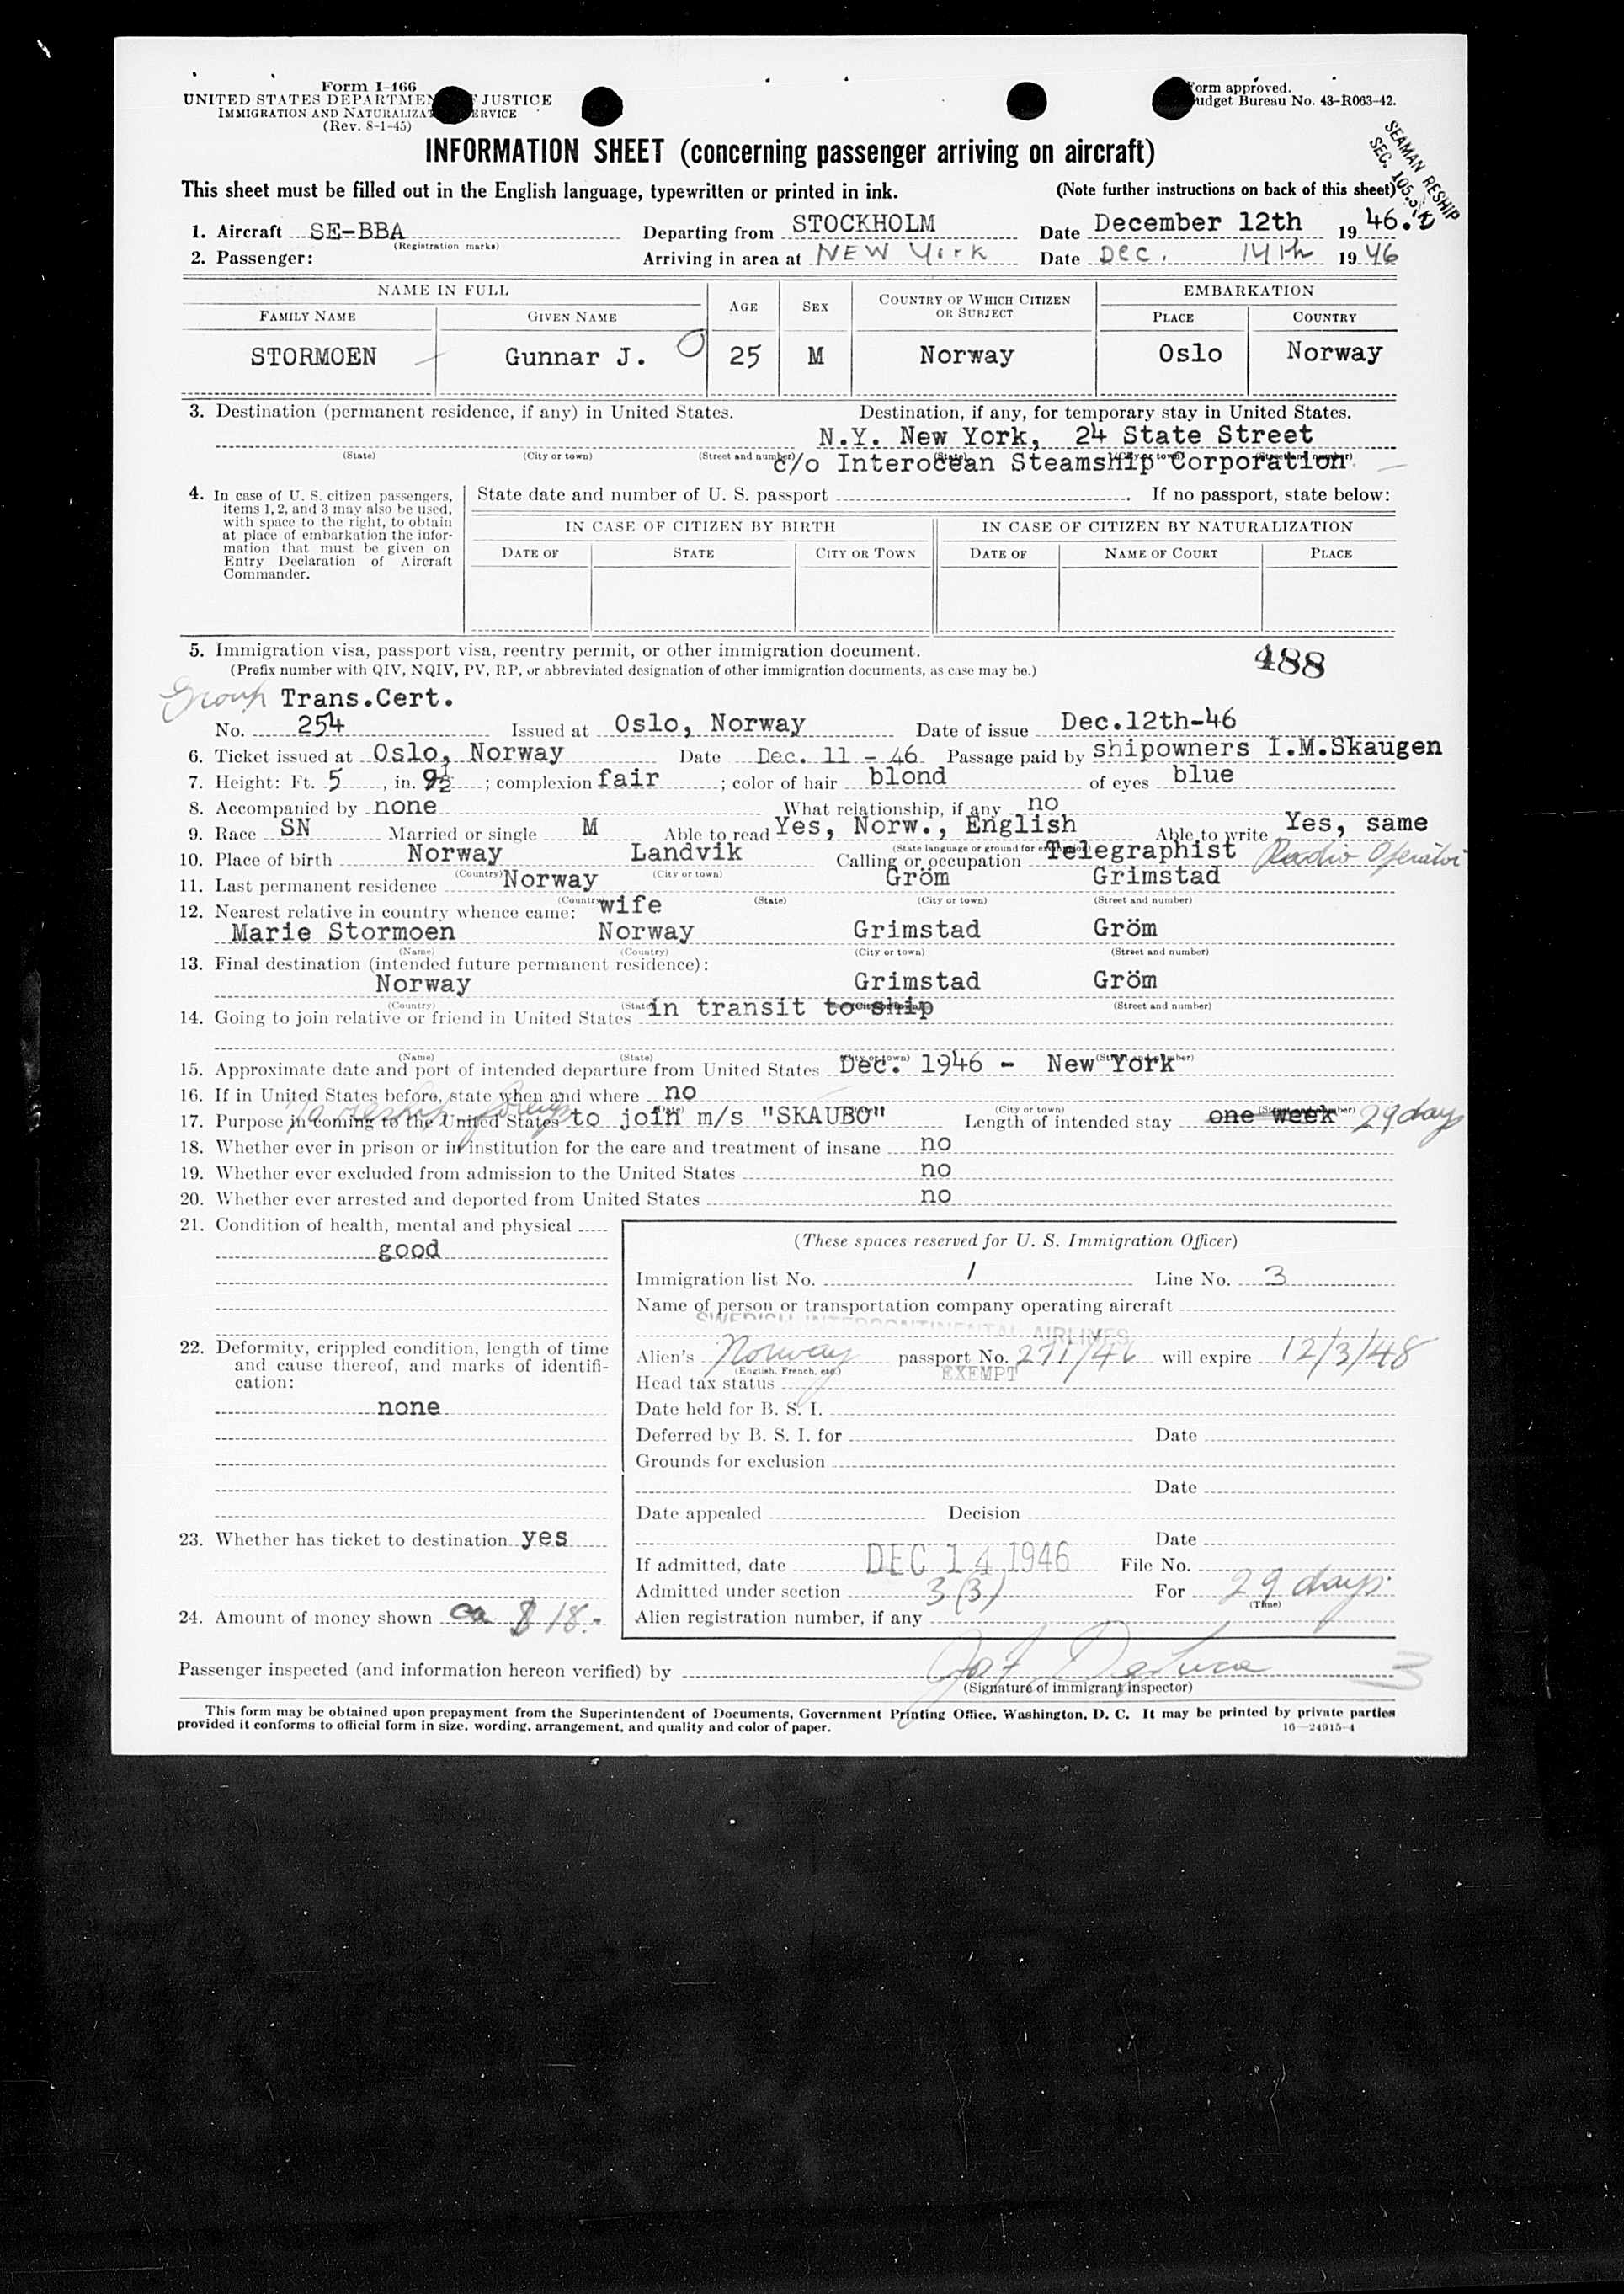 Form I-466
UNITED STATES DEPARTMENT OF JUSTICE
IMMIGRATION AND NATURALIZATION SERVICE
(Rev. 8-1-45)
Form approved.
Budget Bureau No. 43-R063-42.
SEAMAN RESHIP
SEC. 105.3(K)
INFORMATION SHEET (concerning passenger arriving on aircraft)
This sheet must be filled out in the English language, typewritten or printed in ink. (Note further instructions on back of this sheet)
1. Aircraft SE-BBA Departing from STOCKHOLM Date December 12th 19 46.
(Registration marks)
2. Passenger: Arriving in area at NEW York Date Dec. 14th 19 46
NAME IN FULL AGE SEX COUNTRY OF WHICH CITIZEN OR SUBJECT EMBARKATION
FAMILY NAME GIVEN NAME PLACE COUNTRY
STORMOEN Gunnar J. 25 M Norway Oslo Norway
3. Destination (permanent residence, if any) in United States. Destination, if any, for temporary stay in United States.
N.Y. New York, 24 State Street
(State) (City or town) (Street and number) (State) (City or town) (Street and number)
c/o Interocean Steamship Corporation
4. In case of U. S. citizen passengers, items 1, 2, and 3 may also be used, with space to the right, to obtain at place of embarkation the information that must be given on Entry Declaration of Aircraft Commander.
State date and number of U. S. passport . If no passport, state below:
IN CASE OF CITIZEN BY BIRTH IN CASE OF CITIZEN BY NATURALIZATION
DATE OF STATE CITY OR TOWN DATE OF NAME OF COURT PLACE
5. Immigration visa, passport visa, reentry permit, or other immigration document. 488
(Prefix number with QIV, NQIV, PV, RP, or abbreviated designation of other immigration documents, as case may be.)
Group Trans.Cert.
No. 254 Issued at Oslo, Norway Date of issue Dec.12th-46
6. Ticket issued at Oslo, Norway Date Dec. 11 - 46 Passage paid by shipowners I.M.Skaugen
7. Height: Ft. 5, in. 9½; complexion fair; color of hair blond of eyes blue
8. Accompanied by none What relationship, if any no
9. Race SN Married or single M Able to read Yes, Norw., English Able to write Yes, same
(State language or ground for exemption)
10. Place of birth Norway Landvik Calling or occupation Telegraphist Radio Operator
(Country) (City or town)
11. Last permanent residence Norway Gröm Grimstad
(Country) (State) (City or town) (Street and number)
12. Nearest relative in country whence came: wife
Marie Stormoen Norway Grimstad Gröm
(Name) (Country) (City or town) (Street and number)
13. Final destination (intended future permanent residence):
Norway Grimstad Gröm
(Country) (State) (City or town) (Street and number)
14. Going to join relative or friend in United States in transit to ship
(Name) (State) (City or town) (Street and number)
15. Approximate date and port of intended departure from United States Dec. 1946 - New York
16. If in United States before, state when and where no
(Date) (City or town) (Street and number)
To reship foreign
17. Purpose in coming to the United States to join m/s "SKAUBO" Length of intended stay one week 29 days
18. Whether ever in prison or in institution for the care and treatment of insane no
19. Whether ever excluded from admission to the United States no
20. Whether ever arrested and deported from United States no
21. Condition of health, mental and physical
good
22. Deformity, crippled condition, length of time and cause thereof, and marks of identification:
none
23. Whether has ticket to destination yes
24. Amount of money shown ca $ 18.-
(These spaces reserved for U. S. Immigration Officer)
Immigration list No. 1 Line No. 3
Name of person or transportation company operating aircraft
SWEDISH INTERCONTINENTAL AIRLINES
Alien's Norway passport No. 271/46 will expire 12/3/48
(English, French, etc.)
Head tax status EXEMPT
Date held for B. S. I.
Deferred by B. S. I. for Date
Grounds for exclusion
Date
Date appealed Decision
Date
If admitted, date DEC 14 1946 File No.
Admitted under section 3(3) For 29 days
(Time)
Alien registration number, if any
Passenger inspected (and information hereon verified) by Jos F DeLuca 3
(Signature of immigrant inspector)
This form may be obtained upon prepayment from the Superintendent of Documents, Government Printing Office, Washington, D. C. It may be printed by private parties
provided it conforms to official form in size, wording, arrangement, and quality and color of paper. 16—24915-4